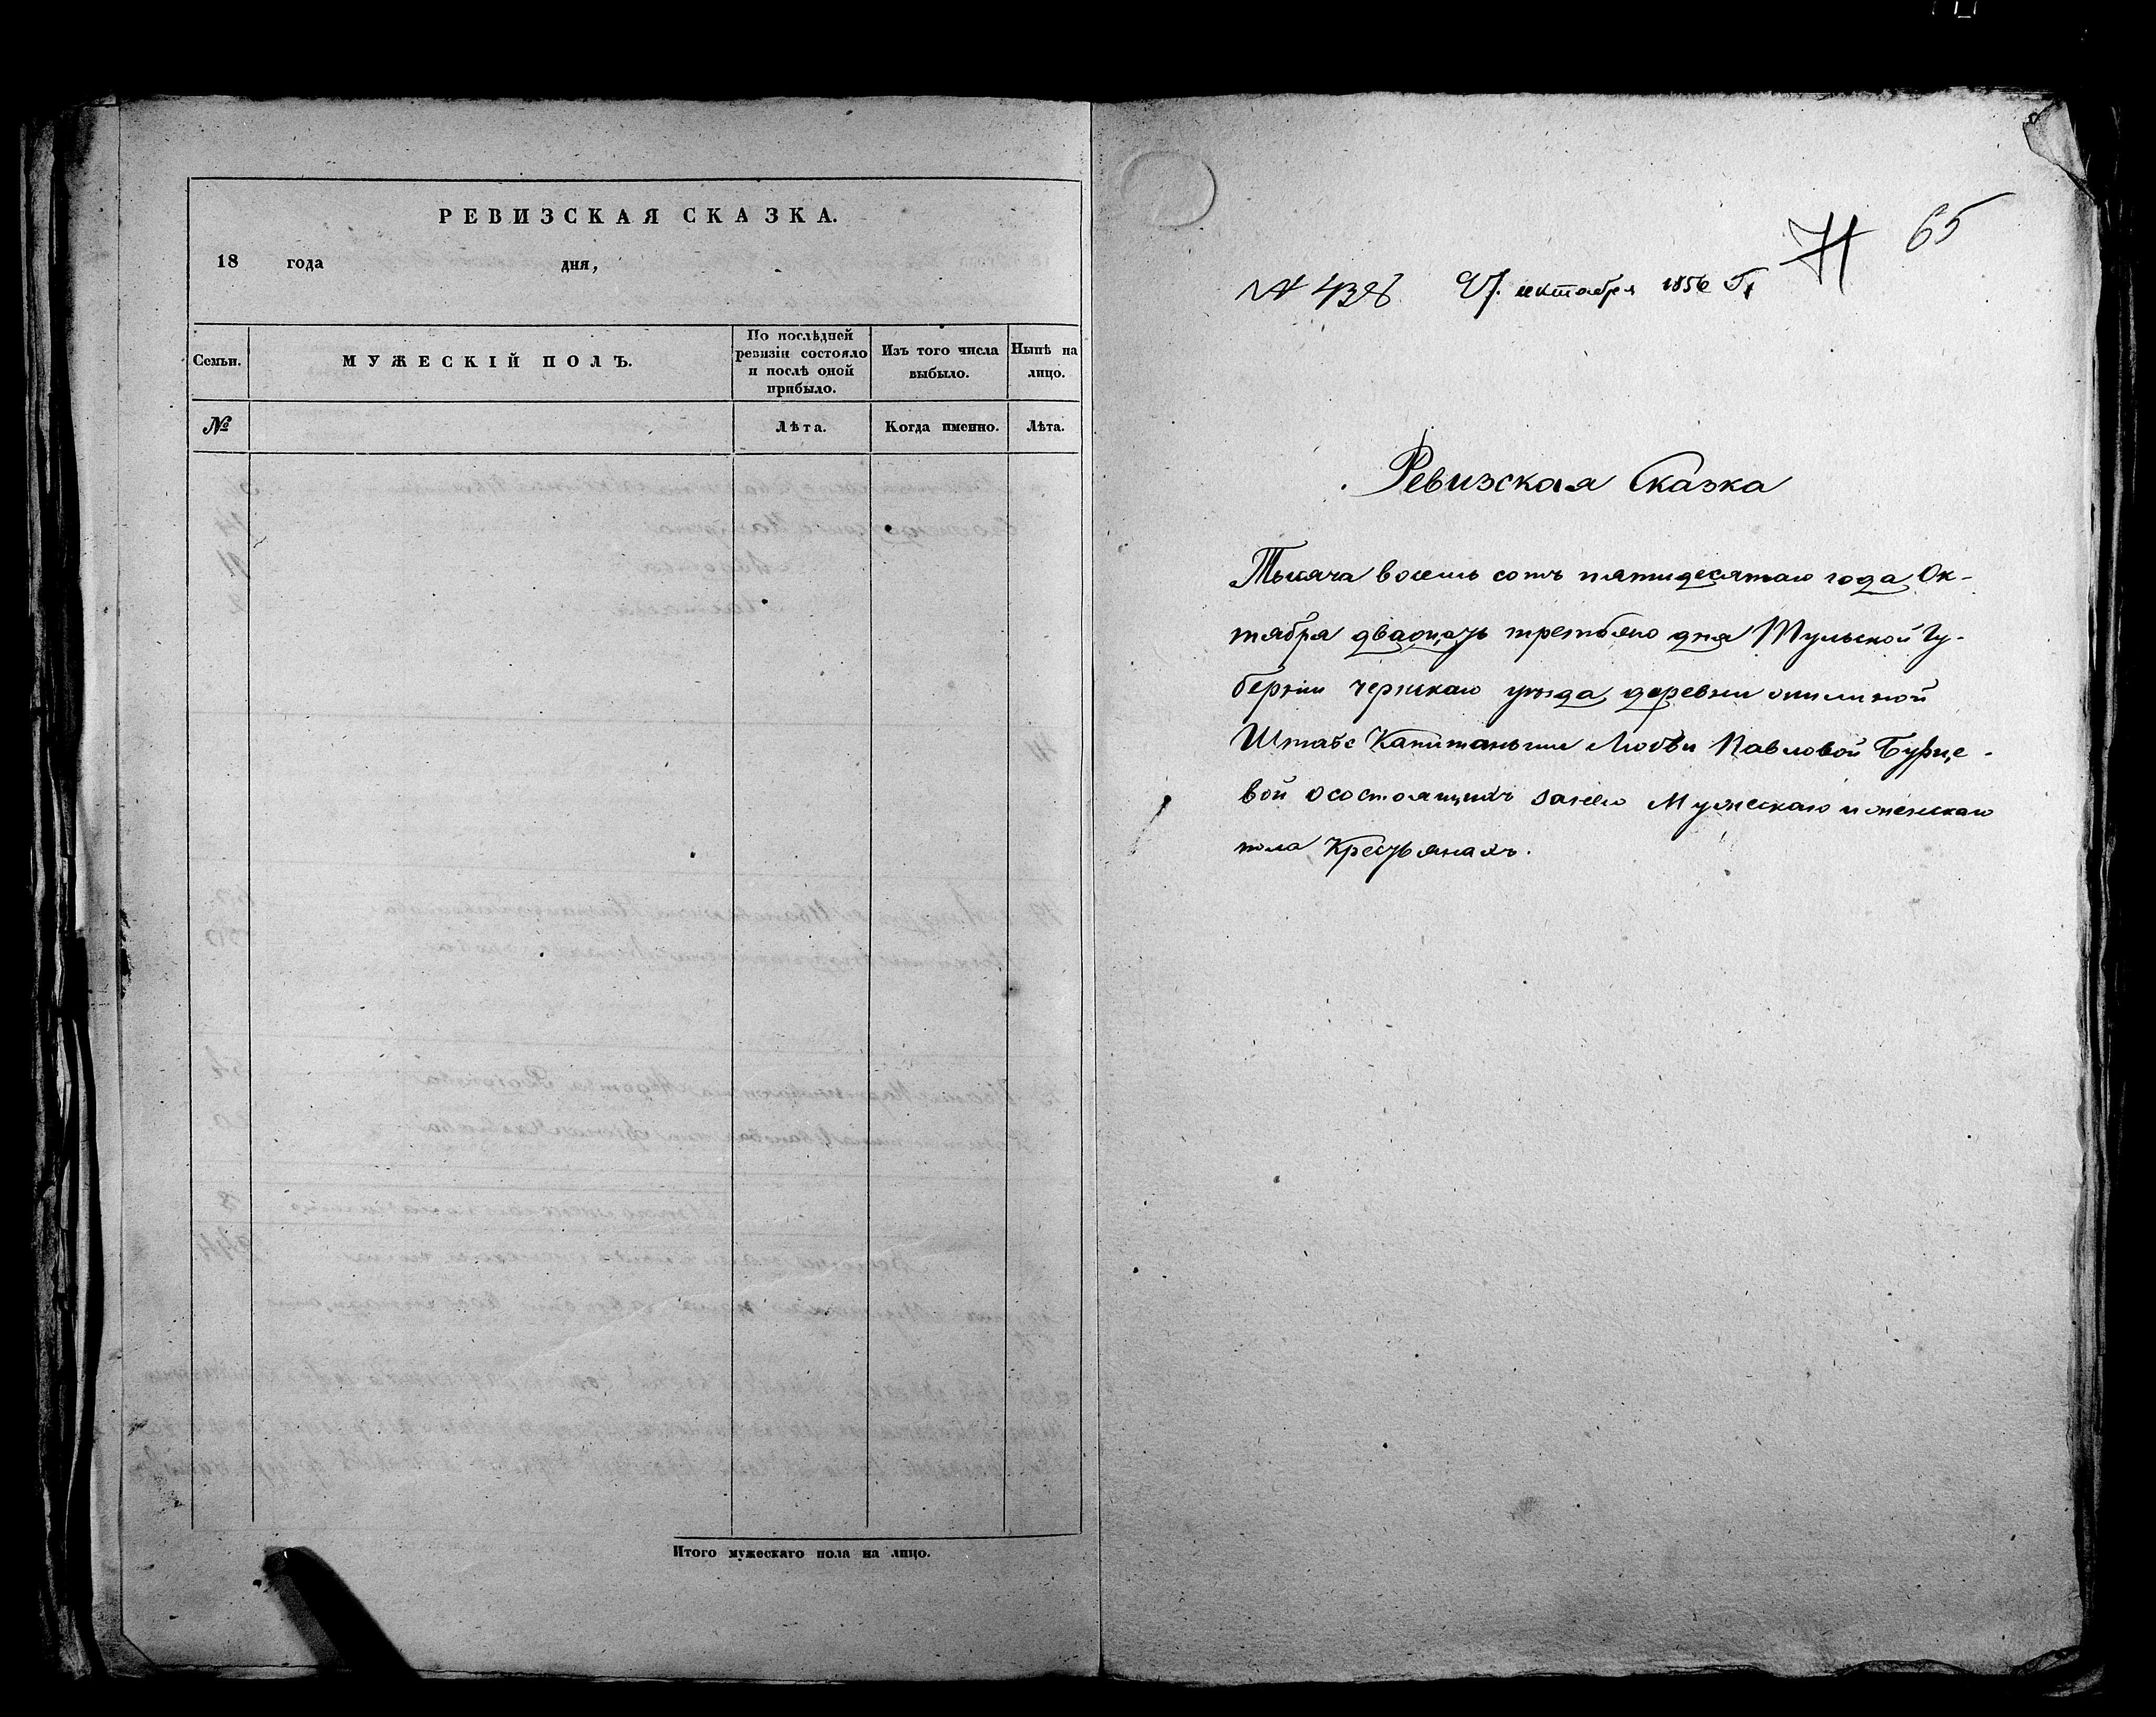 РЕВИЗСКАЯ СКАЗКА.
18 года дня,
Семьи.
МУЖЕСКІЙ ПОЛЪ.
По послѣдней
ревизіи состояло
и послѣ оной
прибыло.
Изъ того числа
выбыло.
Нынѣ на
лицо.
№
Лѣта.
Когда именно.
Лѣта.
Итого мужескаго пола на лицо.
65
октября 1850 Г.
Ревизская Сказка
Тысяча восемь сотъ пятидесятаго года Ок-
тября двадцать третьяго дня Тульской Гу-
берніи чернскаго уѣзда деревни
Штабс Капитанши Любви Павловой Бурце-
вой о состоящихъ за нею Мужескаго и женскаго
пола Крестьянахъ.